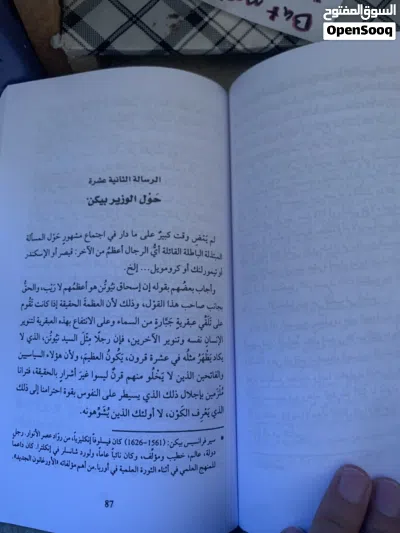 السوق المفتوح
OpenSooq
But m
الرسالة الثانية عشرة
حَوْل الوزير بيكن*
لم يَمْضِ وقت كبيرٌ على ما دار في اجتماع مشهورٍ حَوْل المسألة
المبتذلة الباطلة القائلة أيُّ الرجال أعظمُ من الآخر: قيصر أو الإسكندر
أو تيمورلنك أو كرومويل... إلخ.
وأجاب بعضُهم بقوله إن إسحاق نيُوتُن هو أعظمُهم لا رَيْب، والحقُّ
بجانب صاحب هذا القَوْل، وذلك لأن العظمةَ الحقيقة إذا كانت تَقُومُ
على تَلَقِّي عبقريةٍ جَبَّارةٍ من السماء وعلى الانتفاع بهذه العبقرية لتنوير
الإنسان نفسه وتنوير الآخرين، فإن رجلًا مثلَ السيد نيُوتُن، الذي لا
يكاد يَظْهَرُ مثلُه في عشرة قرون، يَكُونُ العظيمَ، ولأن هؤلاء السياسيين
والفاتحين الذين لا يَخْلُو منهم قرنٌ ليسوا غيرَ أشرارٍ بالحقيقة، فترانا
مُلْزَمين بإجلال ذلك الذي يسيطر على النفوس بقوة احترامنا إلى ذلك
الذي يَعْرِف الكَوْن، لا أولئك الذين يُشَوِّهونه.
* سير فرانسيس بيكن: (1561–1626) كان فيلسوفاً إنكليزياً، من روّاد عصر الأنوار. رجل
دولة، عالم، خطيب ومؤلّف، وكان نائباً عاماً، ولورد شانسلر في إنكلترا. كان داهماً
للمنهج العلمي في أثناء الثورة العلمية في أوربا. من أهم مؤلفاته الأورغانون الجديد.
87